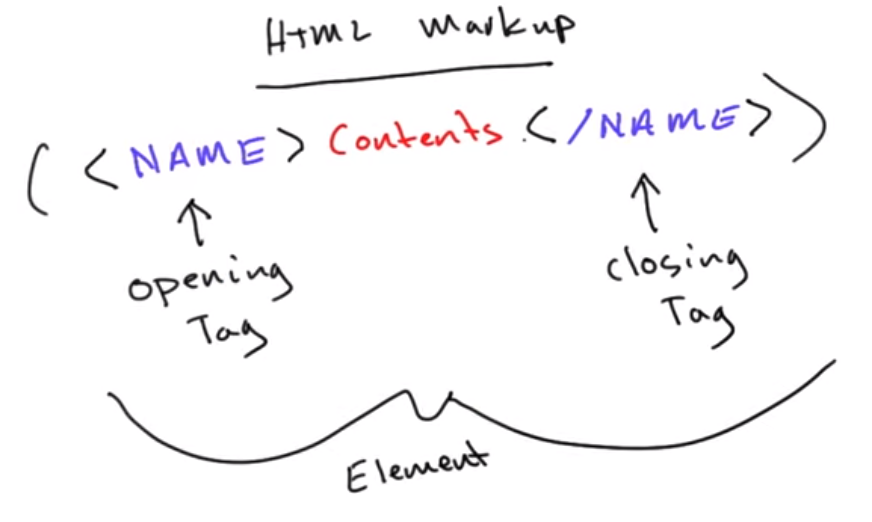 Html Markup
(<NAME> Contents </NAME>)
opening
Tag
closing
Tag
Element